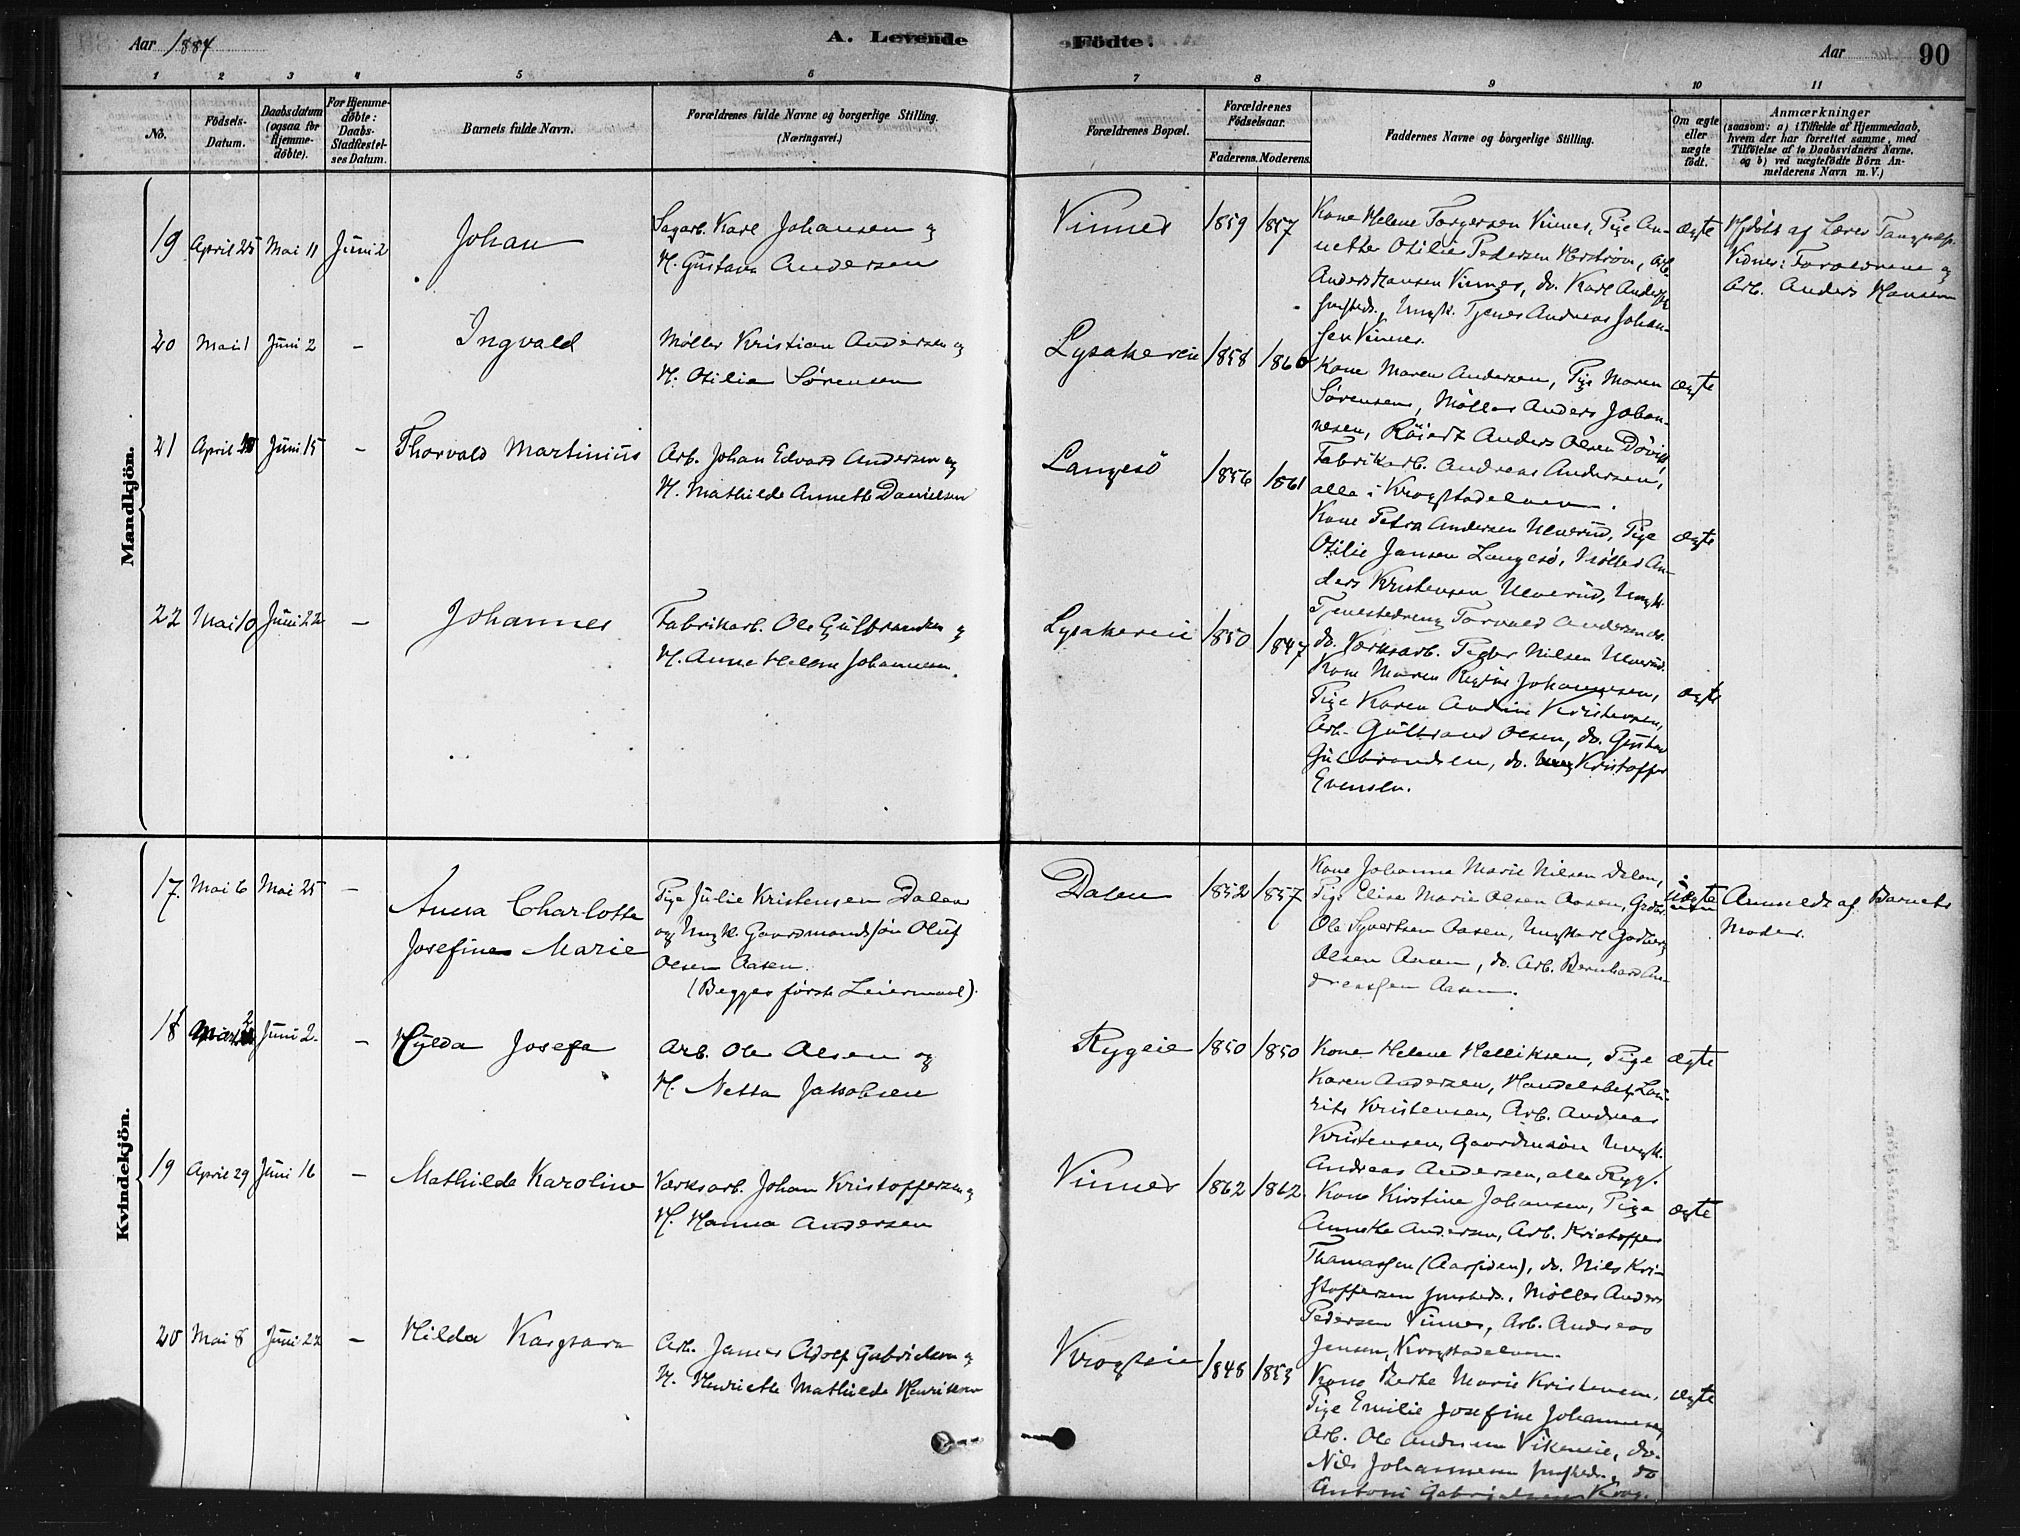 Aar 1884
A. Levende Födte.
Aar 90
1 2 3 4 5 6 7 8 9 10 11
No.
Födsels-Datum.
Daabsdatum (ogsaa for Hjemme-döbte).
For Hjemme-döbte: Daabs-Stadfæstel-ses Datum.
Barnets fulde Navn.
Forældrenes fulde Navne og borgerlige Stilling. (Næringsvei.)
Forældrenes Bopæl.
Forældrenes Födselsaar.
Faderens. Moderens.
Faddernes Navne og borgerlige Stilling.
Om ægte eller uægte födt.
Anmærkninger
(saasom: a) i Tilfælde af Hjemmedaab,
hvem der har forrettet samme, med
Tilföielse af to Daabsvidners Navne.
og b) ved uægtefödte Börn An-
melderens Navn m. V.)
Mandkjön.
19 April 25 Mai 11 Juni 2 Johan
Sagarb. Karl Johansen og
H. Gustava Andersen
Vinnes 1859 1857
Kone Helene Torgersen Vinnes, Pige An-
nette Otilie Pedersen Herstrøm, Arb.
Anders Hansen Vinnes, do. Karl Anders
Imsteds, Ungk. Tjener Andreas Johan-
sen Vinnes.
ægte
Hjdøbt af Lærer
Vidner: Forældrene og
Arb. Anders Hansen
20 Mai 1 Juni 2 – Ingvald
Møller Kristian Andersen og
H. Otilia Sørensen
Lysakereie 1858 1860
Kone Maren Andersen, Pige Maren
Sørensen, Møller Anders Johan-
nesen, Anders Olsen
Fabrikarb. Andreas Andersen,
alle i Krogstadelven.
ægte
21 April Juni 15 – Thorvald Martinius
Arb. Johan Edvard Andersen og
H. Mathilde Annette Danielsen
Langesö 1856 1861
Kone Petra Andersen Ulverud, Pige
Otilie Jansen Langesö, Møller An-
ders Kristensen Ulverud, Ungk.
Tjenestedreng Torvald Andersen do.
do. Værksarb. Peder Nilsen Ulverud.
ægte
22 Mai 10 Juni 22 – Johannes
Fabrikarb. Ole Gulbrandsen og
H. Anne Helene Johannesen.
Lysakereie 1850 1847
Kone Maren Regine Johannesen,
Pige Karen Andrine Kristensen,
Arb. Gulbrand Olsen, do. Gustav
Gulbrandsen, do. Kristoffer
Evensen.
ægte
Kvindekjön.
17. Mai 6 Mai 25 – Anna Charlotte
Josefine Marie
Pige Julie Kristensen Dalen
og Ungk. Gaardmandssøn Oluf
Olsen Aasen.
(Begges første Leiermaal).
Dalen 1852 1857
Kone Johanna Marie Nilsen Dalen,
Pige Elise Marie Olsen Aasen, Grdbr.
Ole Syvertsen Aasen, Ungkarl
Olsen Aasen, do. Arb. Bernhard An-
dreassen Aasen.
uægte
Anmeldt af Barnets
Moder.
18 Juni 2. – Hulda Josefa
Arb. Ole Olsen og
H. Netta Jakobsen
Rygeie 1850 1850
Kone Helene Helliksen, Pige
Karen Andersen, Handelsbetj. Lau-
rits Kristensen, Arb. Andreas
Kristensen, Gaardmsøn Ungk.
Andreas Andersen, alle Ryg.
ægte
19 April 29 Juni 16 – Mathilde Karoline
Værksarb. Johan Kristoffersen og
H. Hanna Andersen
Vinnes 1862 1862
Kone Kirstine Johansen, Pige
Annette Andersen, Arb. Kristoffer
Thomassen (Aarsiden), do. Nils Kri-
stoffersen Imsteds, Møller Anders
Pedersen Vinnes, Arb. Andreas
Jensen, Krogstadelven.
ægte
20 Mai 8 Juni 22 – Hilda
Arb. Adolf Gabrielsen og
H. Henriette Mathilde Henriksen
1848 1853
Kone Berte Marie Kristensen,
Pige Emilie Josefine Johannesen,
Arb. Ole Andersen Vikeneie, do.
Nils Johannesen Imsteds, do
Antoni Gabrielsen
ægte